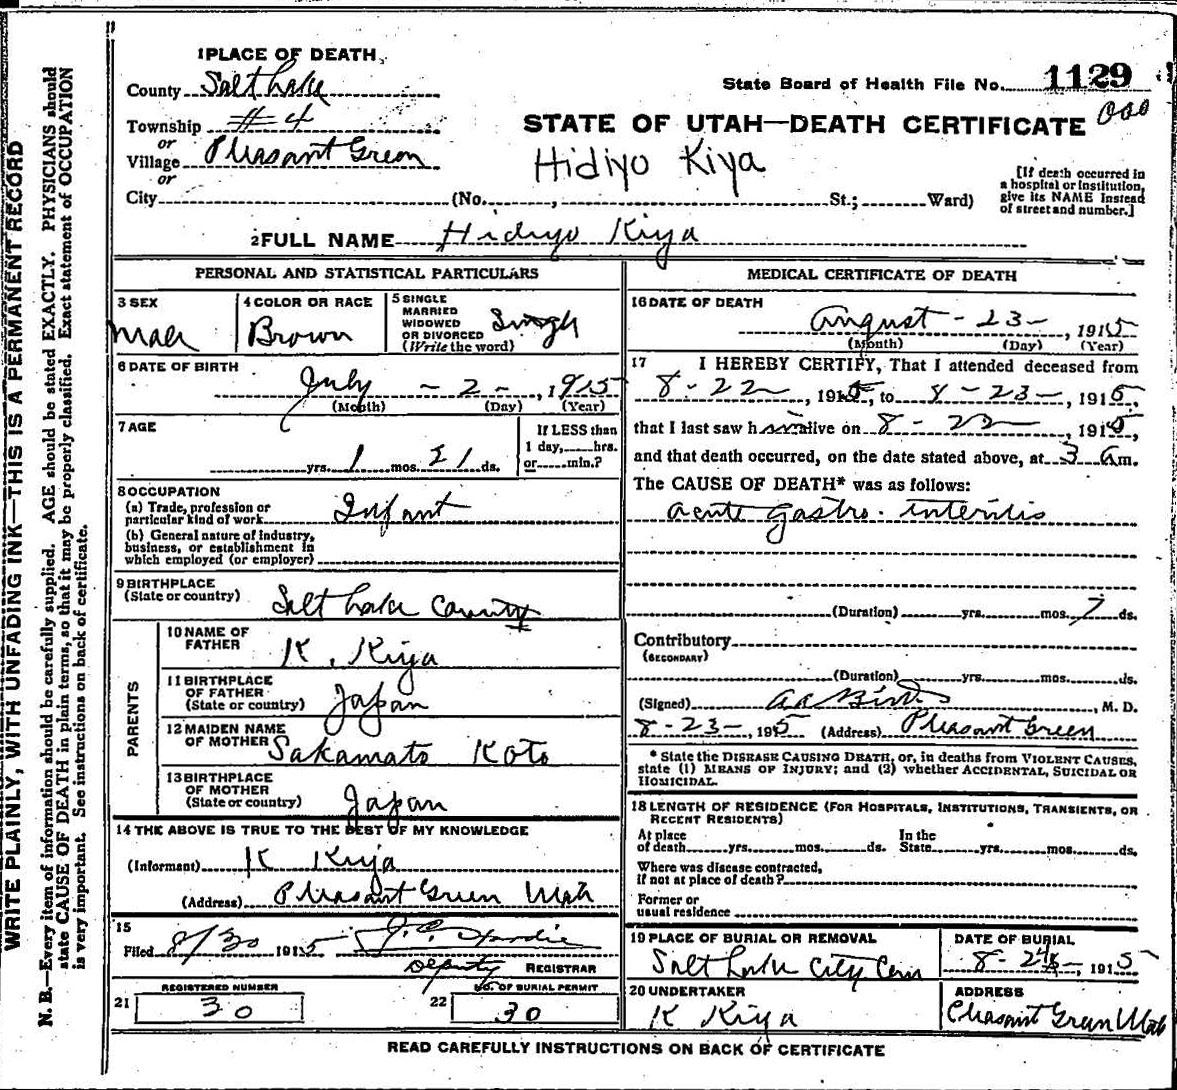 WRITE PLAINLY, WITH UNFADING INK—THIS IS A PERMANENT RECORD
N. B.—Every item of information should be carefully supplied. AGE should be stated EXACTLY. PHYSICIANS should
state CAUSE OF DEATH in plain terms, so that it may be properly classified. Exact statement of OCCUPATION
is very important. See instructions on back of certificate.
1 PLACE OF DEATH
County Salt Lake
State Board of Health File No. 1129
Township #4
or
Village Pleasant Green
or
City (No. , St.; Ward)
STATE OF UTAH—DEATH CERTIFICATE
Hidiyo Kiya
[If death occurred in
a hospital or institution,
give its NAME instead
of street and number.]
2 FULL NAME Hidiyo Kiya
PERSONAL AND STATISTICAL PARTICULARS
3 SEX
Male
4 COLOR OR RACE
Brown
5 SINGLE
MARRIED
WIDOWED
OR DIVORCED
(Write the word)
Single
6 DATE OF BIRTH
July - 2 - , 1915
(Month) (Day) (Year)
7 AGE
yrs. 1 mos. 21 ds.
If LESS than
1 day, hrs.
or min.?
8 OCCUPATION
(a) Trade, profession or
particular kind of work Infant
(b) General nature of industry,
business, or establishment in
which employed (or employer)
9 BIRTHPLACE
(State or country) Salt Lake County
PARENTS
10 NAME OF
FATHER K. Kiya
11 BIRTHPLACE
OF FATHER
(State or country) Japan
12 MAIDEN NAME
OF MOTHER Sakamato Koto
13 BIRTHPLACE
OF MOTHER
(State or country) Japan
14 THE ABOVE IS TRUE TO THE BEST OF MY KNOWLEDGE
(Informant) K Kiya
(Address) Pleasant Green Utah
15
Filed 8/30 1915
Deputy REGISTRAR
21 REGISTERED NUMBER
30
22 NO. OF BURIAL PERMIT
30
MEDICAL CERTIFICATE OF DEATH
16 DATE OF DEATH
August - 23 - , 1915
(Month) (Day) (Year)
17 I HEREBY CERTIFY, That I attended deceased from
8-22 , 1915, to 8-23- , 1915,
that I last saw him alive on 8-22 , 1915,
and that death occurred, on the date stated above, at 3 a m.
The CAUSE OF DEATH* was as follows:
acute gastro. interitis
(Duration) yrs. mos. 7 ds.
Contributory
(SECONDARY)
(Duration) yrs. mos. ds.
(Signed) , M. D.
8-23-, 1915 (Address) Pleasant Green
* State the DISEASE CAUSING DEATH, or, in deaths from VIOLENT CAUSES,
state (1) MEANS OF INJURY; and (2) whether ACCIDENTAL, SUICIDAL OR
HOMICIDAL.
18 LENGTH OF RESIDENCE (FOR HOSPITALS, INSTITUTIONS, TRANSIENTS, OR
RECENT RESIDENTS)
At place
of death yrs. mos. ds.
In the
State yrs. mos. ds.
Where was disease contracted,
if not at place of death?
Former or
usual residence
19 PLACE OF BURIAL OR REMOVAL
Salt Lake City Cem
DATE OF BURIAL
8-24-, 1915
20 UNDERTAKER
K Kiya
ADDRESS
Pleasant Green Utah
READ CAREFULLY INSTRUCTIONS ON BACK OF CERTIFICATE